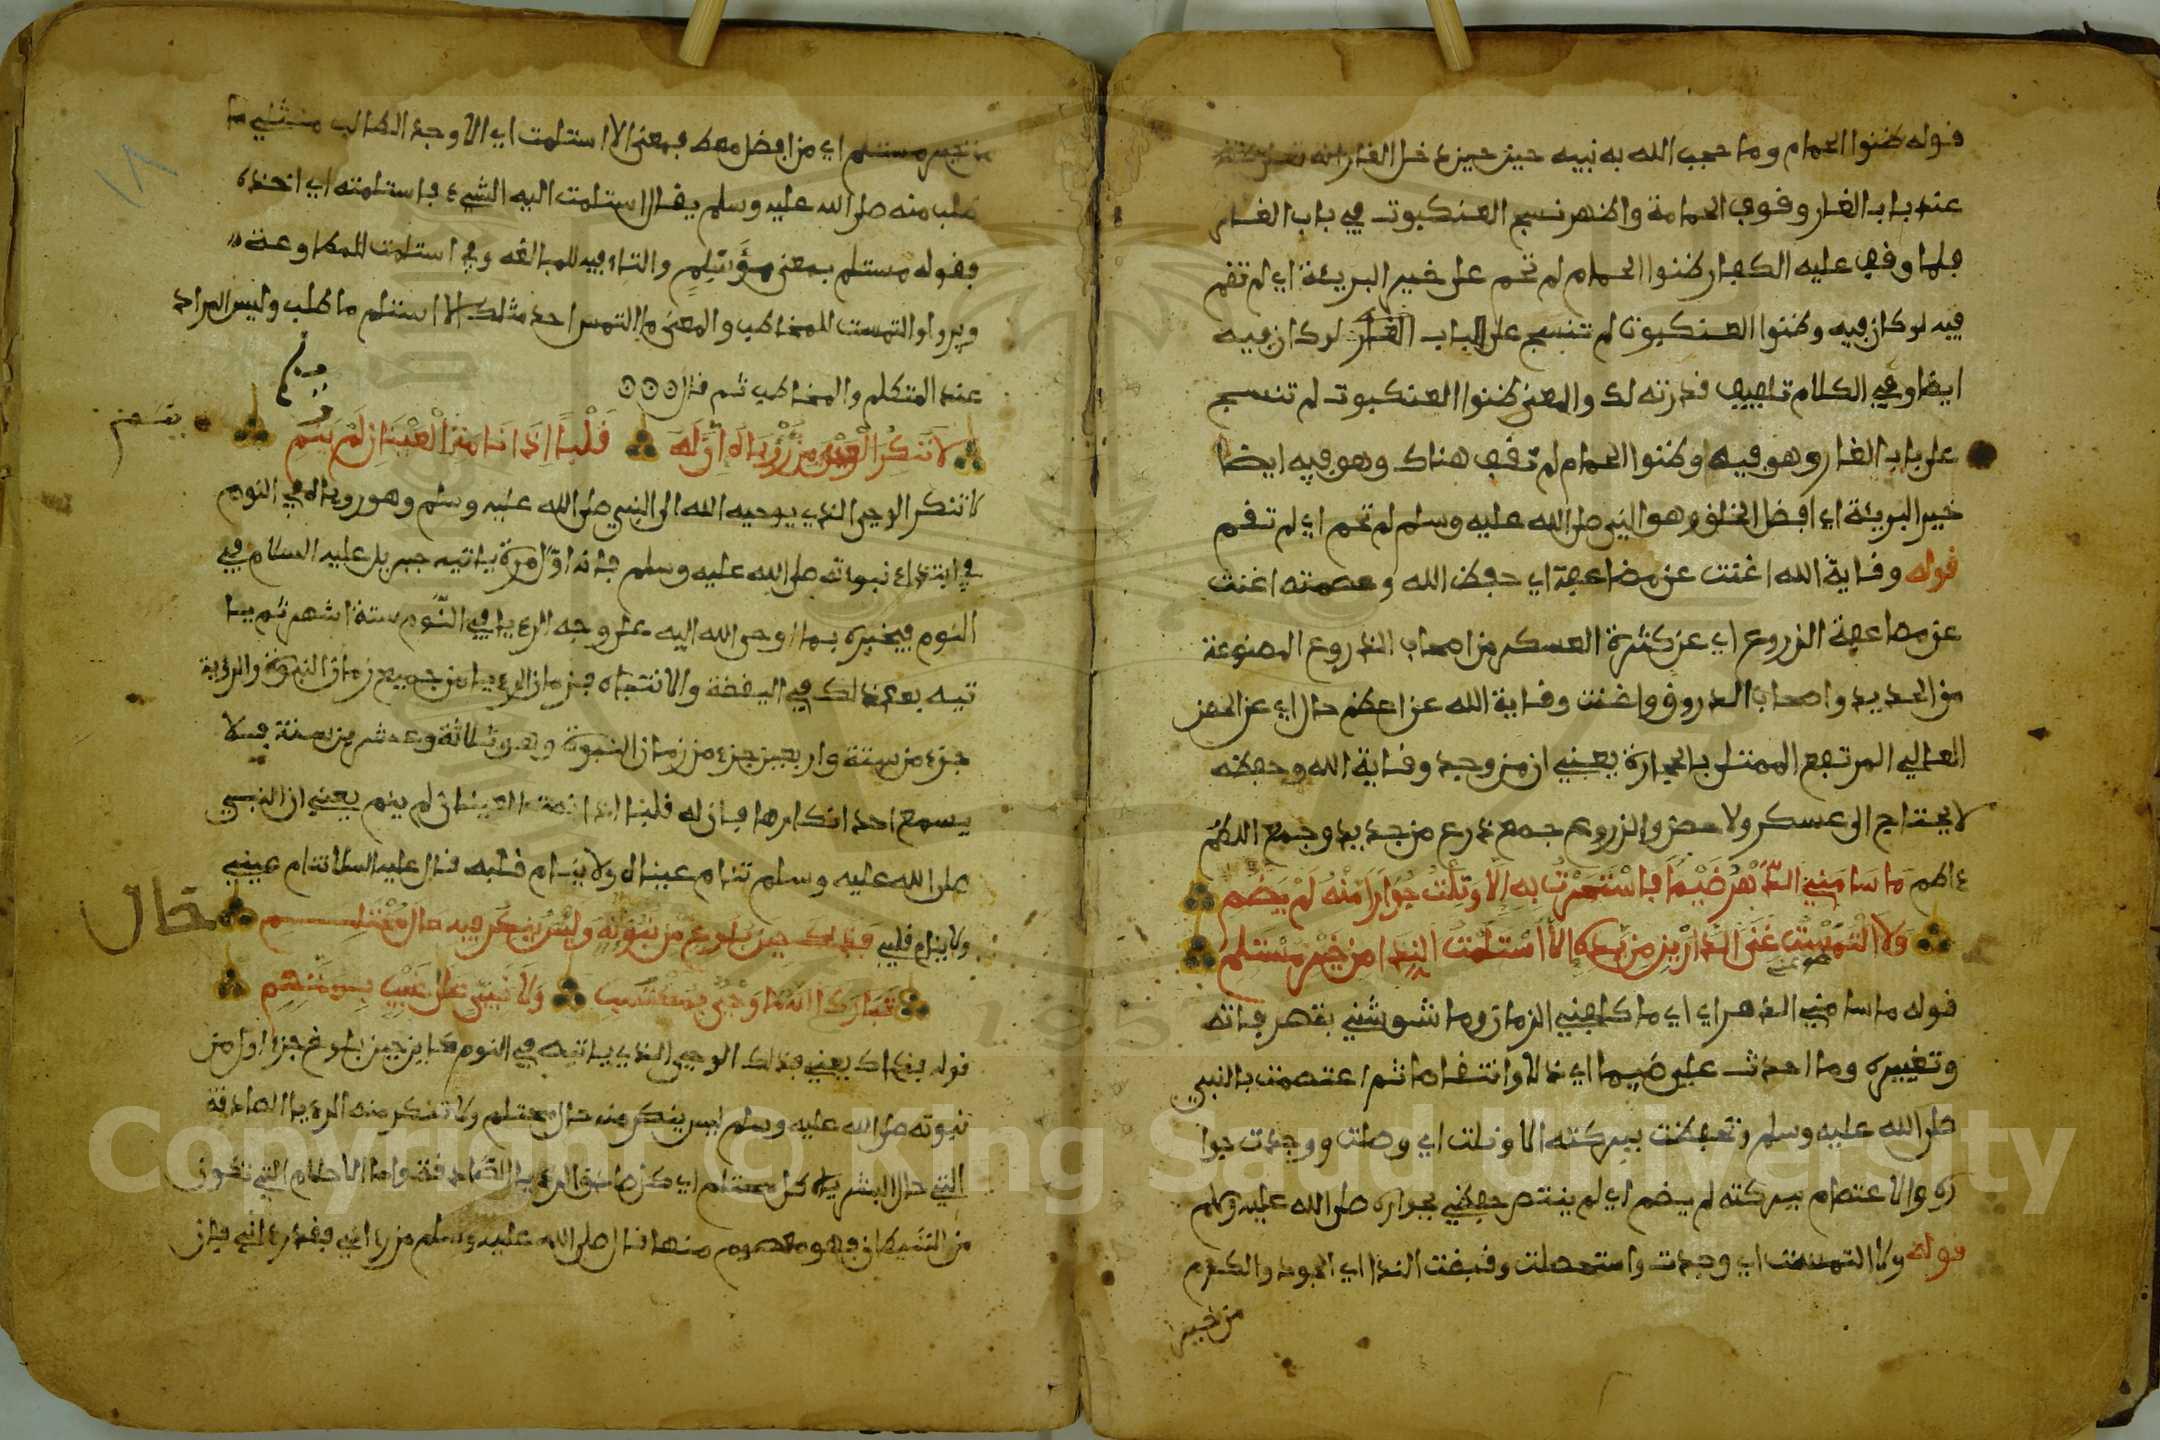 قوله ظنوا الحمام وما حجب الله به نبيه حين حين دخل الغار
عند باب الغار وقوف الحمامة واظهر نسج العنكبوت في باب الغار
فلما وقف عليه الكفار ظنوا الحمام لم تحم على خير البريئة اي لم تقم
فيه لو كان فيه وظنوا العنكبوت لم تنسج على الباب الغار لو كان فيه
ايضا وفي الكلام تلفيف قدرته لك والمعنى ظنوا العنكبوت لم تنسج
على باب الغار وهو فيه وظنوا الحمام لم تقف هناك وهو فيه ايضا
خير البريئة اي افضل الخلق وهو النبي صلى الله عليه وسلم لم تحم اي لم تقم
قوله وقاية الله اغنت عن مضاعفة اي حفظ الله وعصمته اغنت
عن مضاعفة الزروع اي عن كثرة العسكر من اصحاب الذروع المصنوعة
من الحديد واصحاب الدروق واغنت وقاية الله عن اعظم حال اي عن الحصن
العالي المرتفع الممتلى بالحجارة يعني ان من وجد وقاية الله وحفظه
لا يحتاج الى عسكر ولا حصن والزروع جمع ذرع من جديد وجمع الاطم
ءاطم ما سامني الدهر ضيما فاستجرت به الا ونلت جوارا منه لم يضم
ولا التمست غنى الدارين من يده الا استلمت الندا من خير مستلم
قوله ما سامني الدهر اي اي ما كلفني الزمان وما شوشني بقهر فاته
وتغييره وما احدث علي ضيما اي ذلا وانتقاما ثم اعتصمت بالنبي
صلى الله عليه وسلم وتحفظت ببركته الا ونلت اي وصلت ووجدت جوا
ره والاعتصام ببركته لم يضم اي لم ينتقص حفظني بجواره صلى الله عليه وسلم
قوله ولا التمست اي وجدت واستحصلت وقبضت الندا اي الجود والكرم
من خير
من خير مستلم اي من افضل معط فمعنى الا استلمت اي الا وجد الطالب
طلب منه صلى الله عليه وسلم يقال استلمت اليه الشيء فاستلمته اي اخذه
فقوله مستلم بمعنى والتاء فيه للمبالغة وفي استلمت للمطاوعة
ويروا والتمست للمخاطب والمعنى ما التمس احد مثلك الا استلم ما طلب وليس المراد
عند المتكلم والمخاطب ثم قال
لا تنكر الوحي من رؤياه ان له قلبا اذا نامت العينان لم ينم
لا تنكر الوحي الذي يوحيه الله الى النبي صلى الله عليه وسلم وهو روياه في النوم
في ابتداء نبوته صلى الله عليه وسلم فانه اول مرة ياتيه جبريل عليه السلام في
النوم فيخبره بما اوحى الله اليه على وجه الرءيا في النوم ستة اشهر ثم يا
تيه بعد ذلك في اليقظة والانتباه فزمان الرءيا من جميع زمان النبوة والرؤية
جزء من ستة واربعين جزء من زمان النبوة وهو ثلاثة وعشرين سنة فلا
يسمع احد انكارها فان له قلبا اذا نمت العينان لم ينم يعني ان النبي
صلى الله عليه وسلم تنام عيناه ولا ينام قلبه قال عليه السلام تنام عيني
ولا ينام قلبي فذلك حين بلوغ من نبوته وليس ينكر فيه حال محتلم
تبارك الله ما وحي بمكتسب ولا نبي على غيب بمتهم
قوله فذاك يعني فذلك الوحي الذي ياتيه في النوم كاين حين بلوغ جزء اول من
نبوته صلى الله عليه وسلم ليس ينكر منه حال محتلم ولا تنكر منه الرءيا الصادقة
التي حال البشرية كل محتلم اي كل صاحب الرءيا الصادقة واما الاحلام التي تكون
من الشيطان فهو معصوم منها قال صلى الله عليه وسلم من رءاني فقد رءاني فان